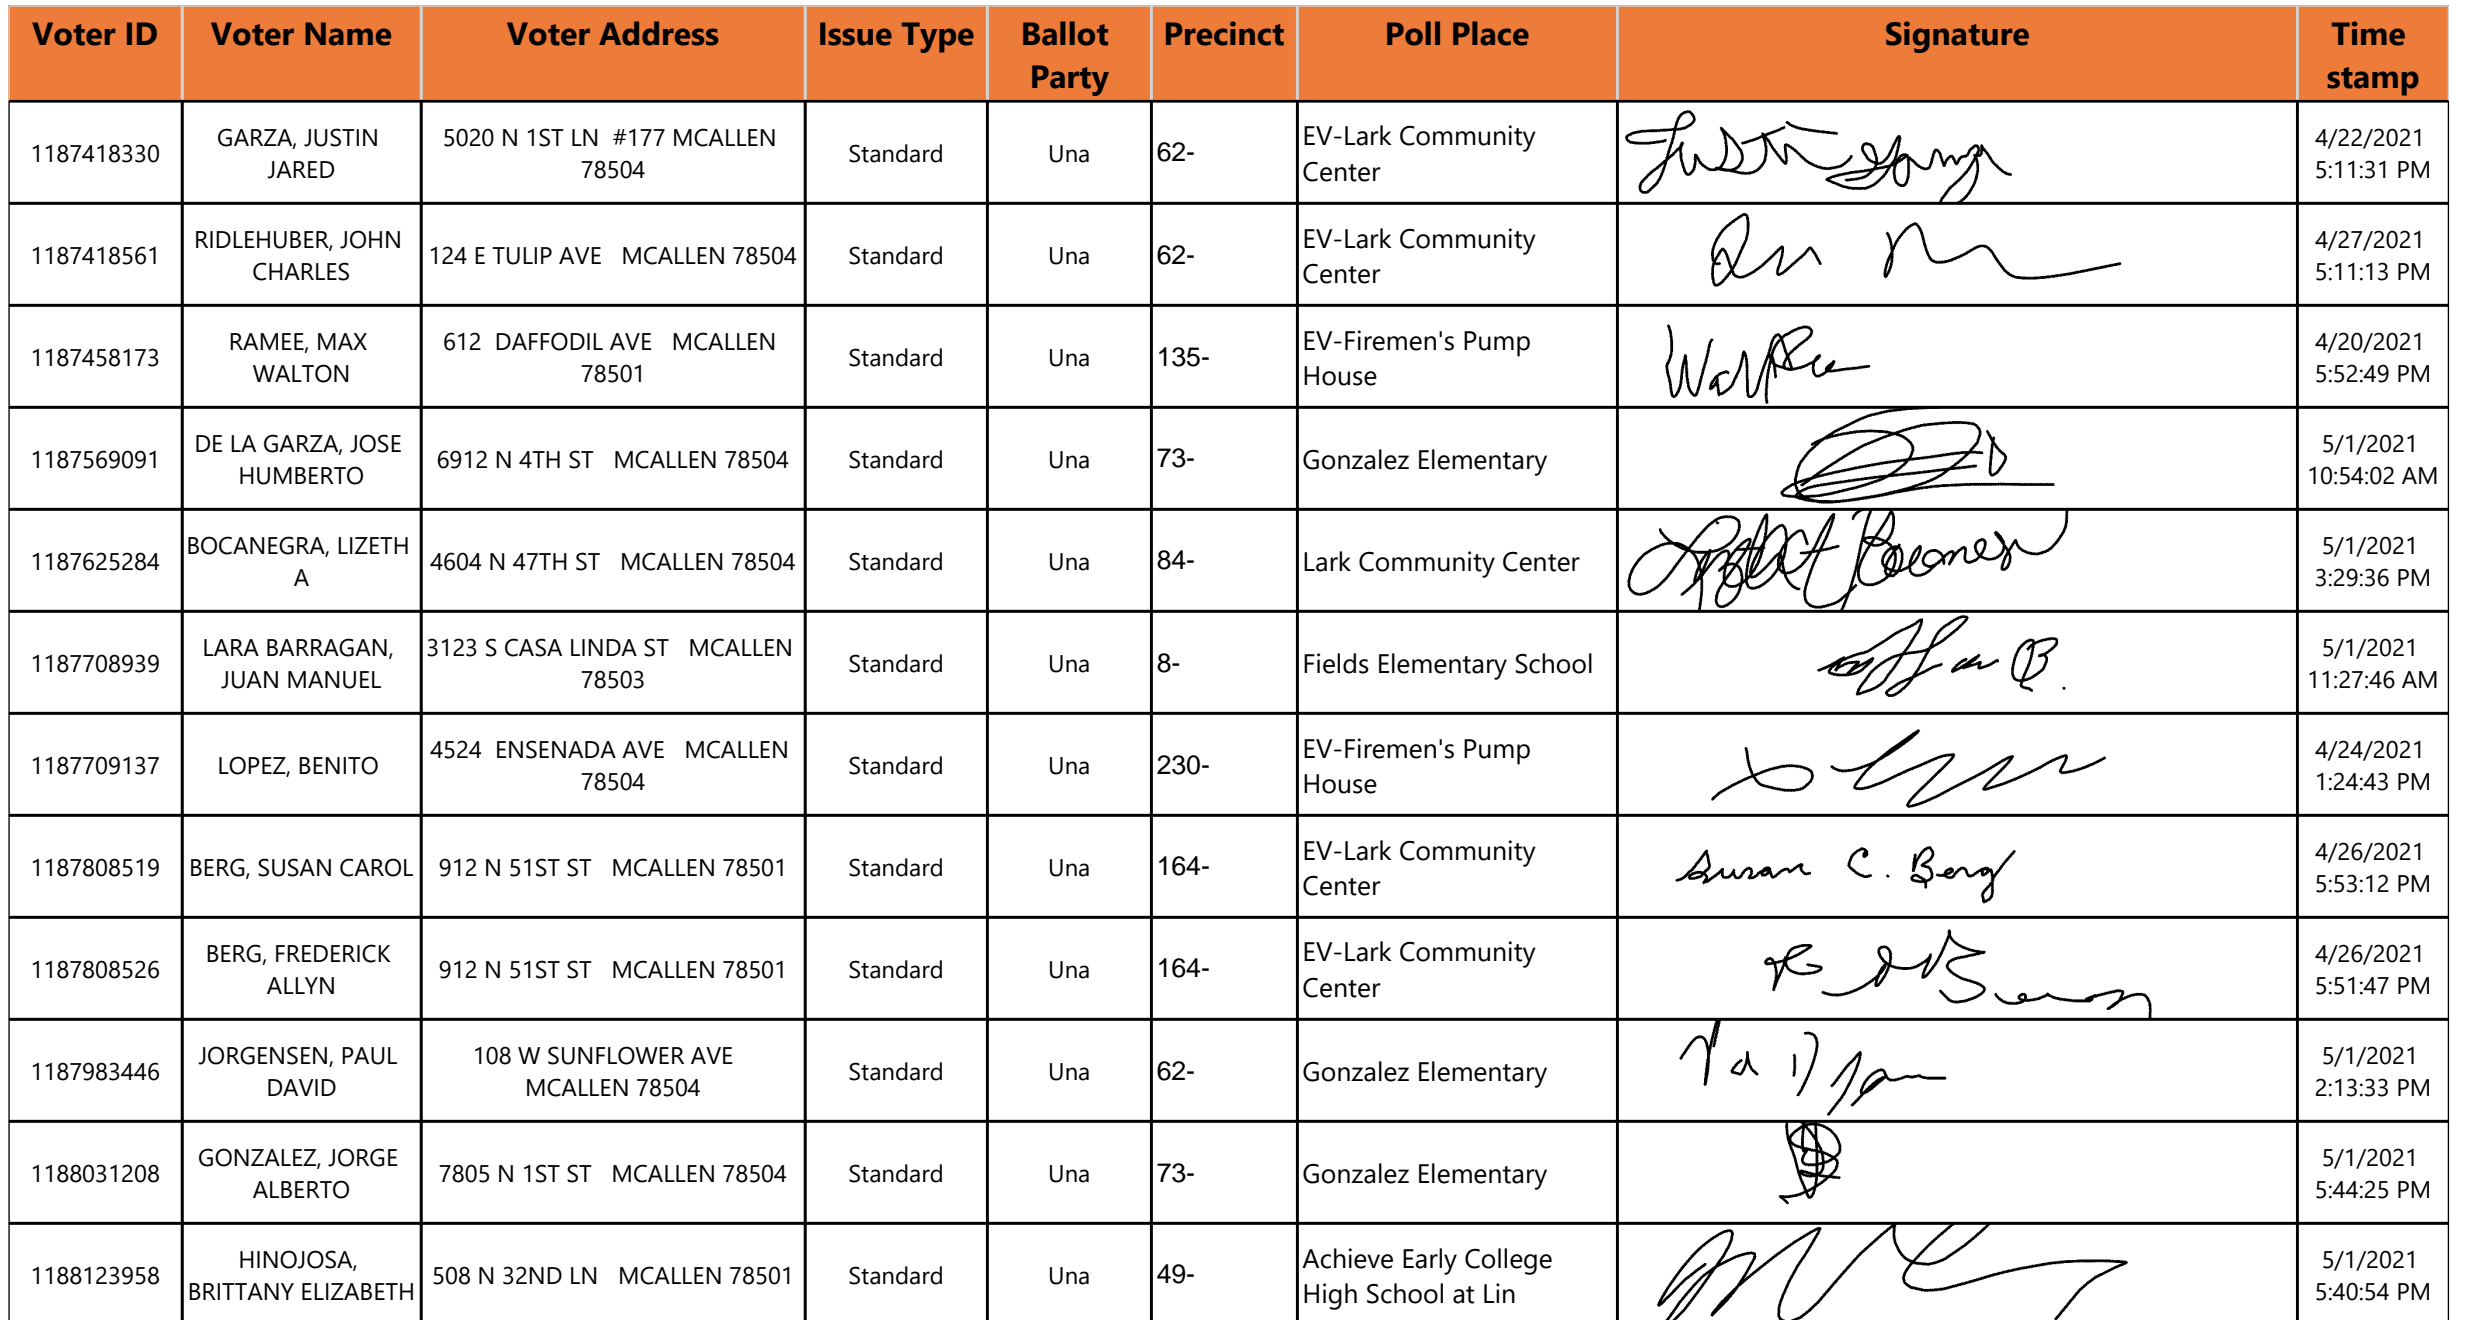 Voter ID Voter Name Voter Address Issue Type Ballot Party Precinct Poll Place Signature Time stamp
1187418330 GARZA, JUSTIN JARED 5020 N 1ST LN #177 MCALLEN 78504 Standard Una 62- EV-Lark Community Center Justin Garza 4/22/2021 5:11:31 PM
1187418561 RIDLEHUBER, JOHN CHARLES 124 E TULIP AVE MCALLEN 78504 Standard Una 62- EV-Lark Community Center 4/27/2021 5:11:13 PM
1187458173 RAMEE, MAX WALTON 612 DAFFODIL AVE MCALLEN 78501 Standard Una 135- EV-Firemen's Pump House 4/20/2021 5:52:49 PM
1187569091 DE LA GARZA, JOSE HUMBERTO 6912 N 4TH ST MCALLEN 78504 Standard Una 73- Gonzalez Elementary 5/1/2021 10:54:02 AM
1187625284 BOCANEGRA, LIZETH A 4604 N 47TH ST MCALLEN 78504 Standard Una 84- Lark Community Center 5/1/2021 3:29:36 PM
1187708939 LARA BARRAGAN, JUAN MANUEL 3123 S CASA LINDA ST MCALLEN 78503 Standard Una 8- Fields Elementary School 5/1/2021 11:27:46 AM
1187709137 LOPEZ, BENITO 4524 ENSENADA AVE MCALLEN 78504 Standard Una 230- EV-Firemen's Pump House 4/24/2021 1:24:43 PM
1187808519 BERG, SUSAN CAROL 912 N 51ST ST MCALLEN 78501 Standard Una 164- EV-Lark Community Center Susan C. Berg 4/26/2021 5:53:12 PM
1187808526 BERG, FREDERICK ALLYN 912 N 51ST ST MCALLEN 78501 Standard Una 164- EV-Lark Community Center 4/26/2021 5:51:47 PM
1187983446 JORGENSEN, PAUL DAVID 108 W SUNFLOWER AVE MCALLEN 78504 Standard Una 62- Gonzalez Elementary 5/1/2021 2:13:33 PM
1188031208 GONZALEZ, JORGE ALBERTO 7805 N 1ST ST MCALLEN 78504 Standard Una 73- Gonzalez Elementary 5/1/2021 5:44:25 PM
1188123958 HINOJOSA, BRITTANY ELIZABETH 508 N 32ND LN MCALLEN 78501 Standard Una 49- Achieve Early College High School at Lin 5/1/2021 5:40:54 PM